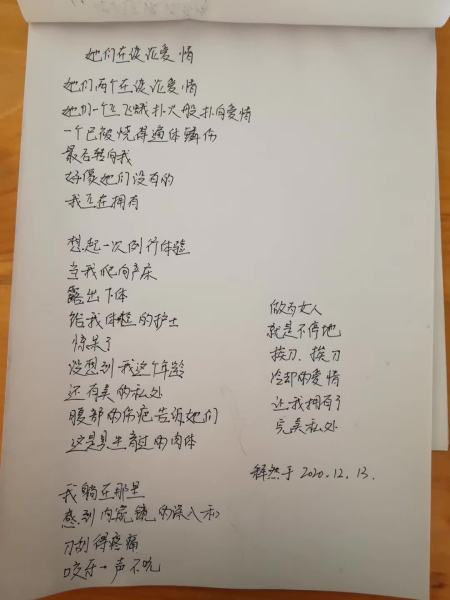 她们在谈论爱情
她们两个在谈论爱情
她们一个正飞蛾扑火般扑向爱情
一个已被烧得通体鳞伤
最后转向我
好像她们没有的
我正在拥有
想起一次例行体检
当我爬向产床
露出下体
给我体检的护士
惊呆了
没想到我这个年龄
还有美的私处
腹部的伤疤告诉她们
这是具生育过的肉体
我躺在那里
感到内窥镜的深入和
刀刮得疼痛
咬牙一声不吭
做为女人
就是不停地
挨刀、挨刀
冷却的爱情
让我拥有了
完美私处
解然于 2020.12.13.